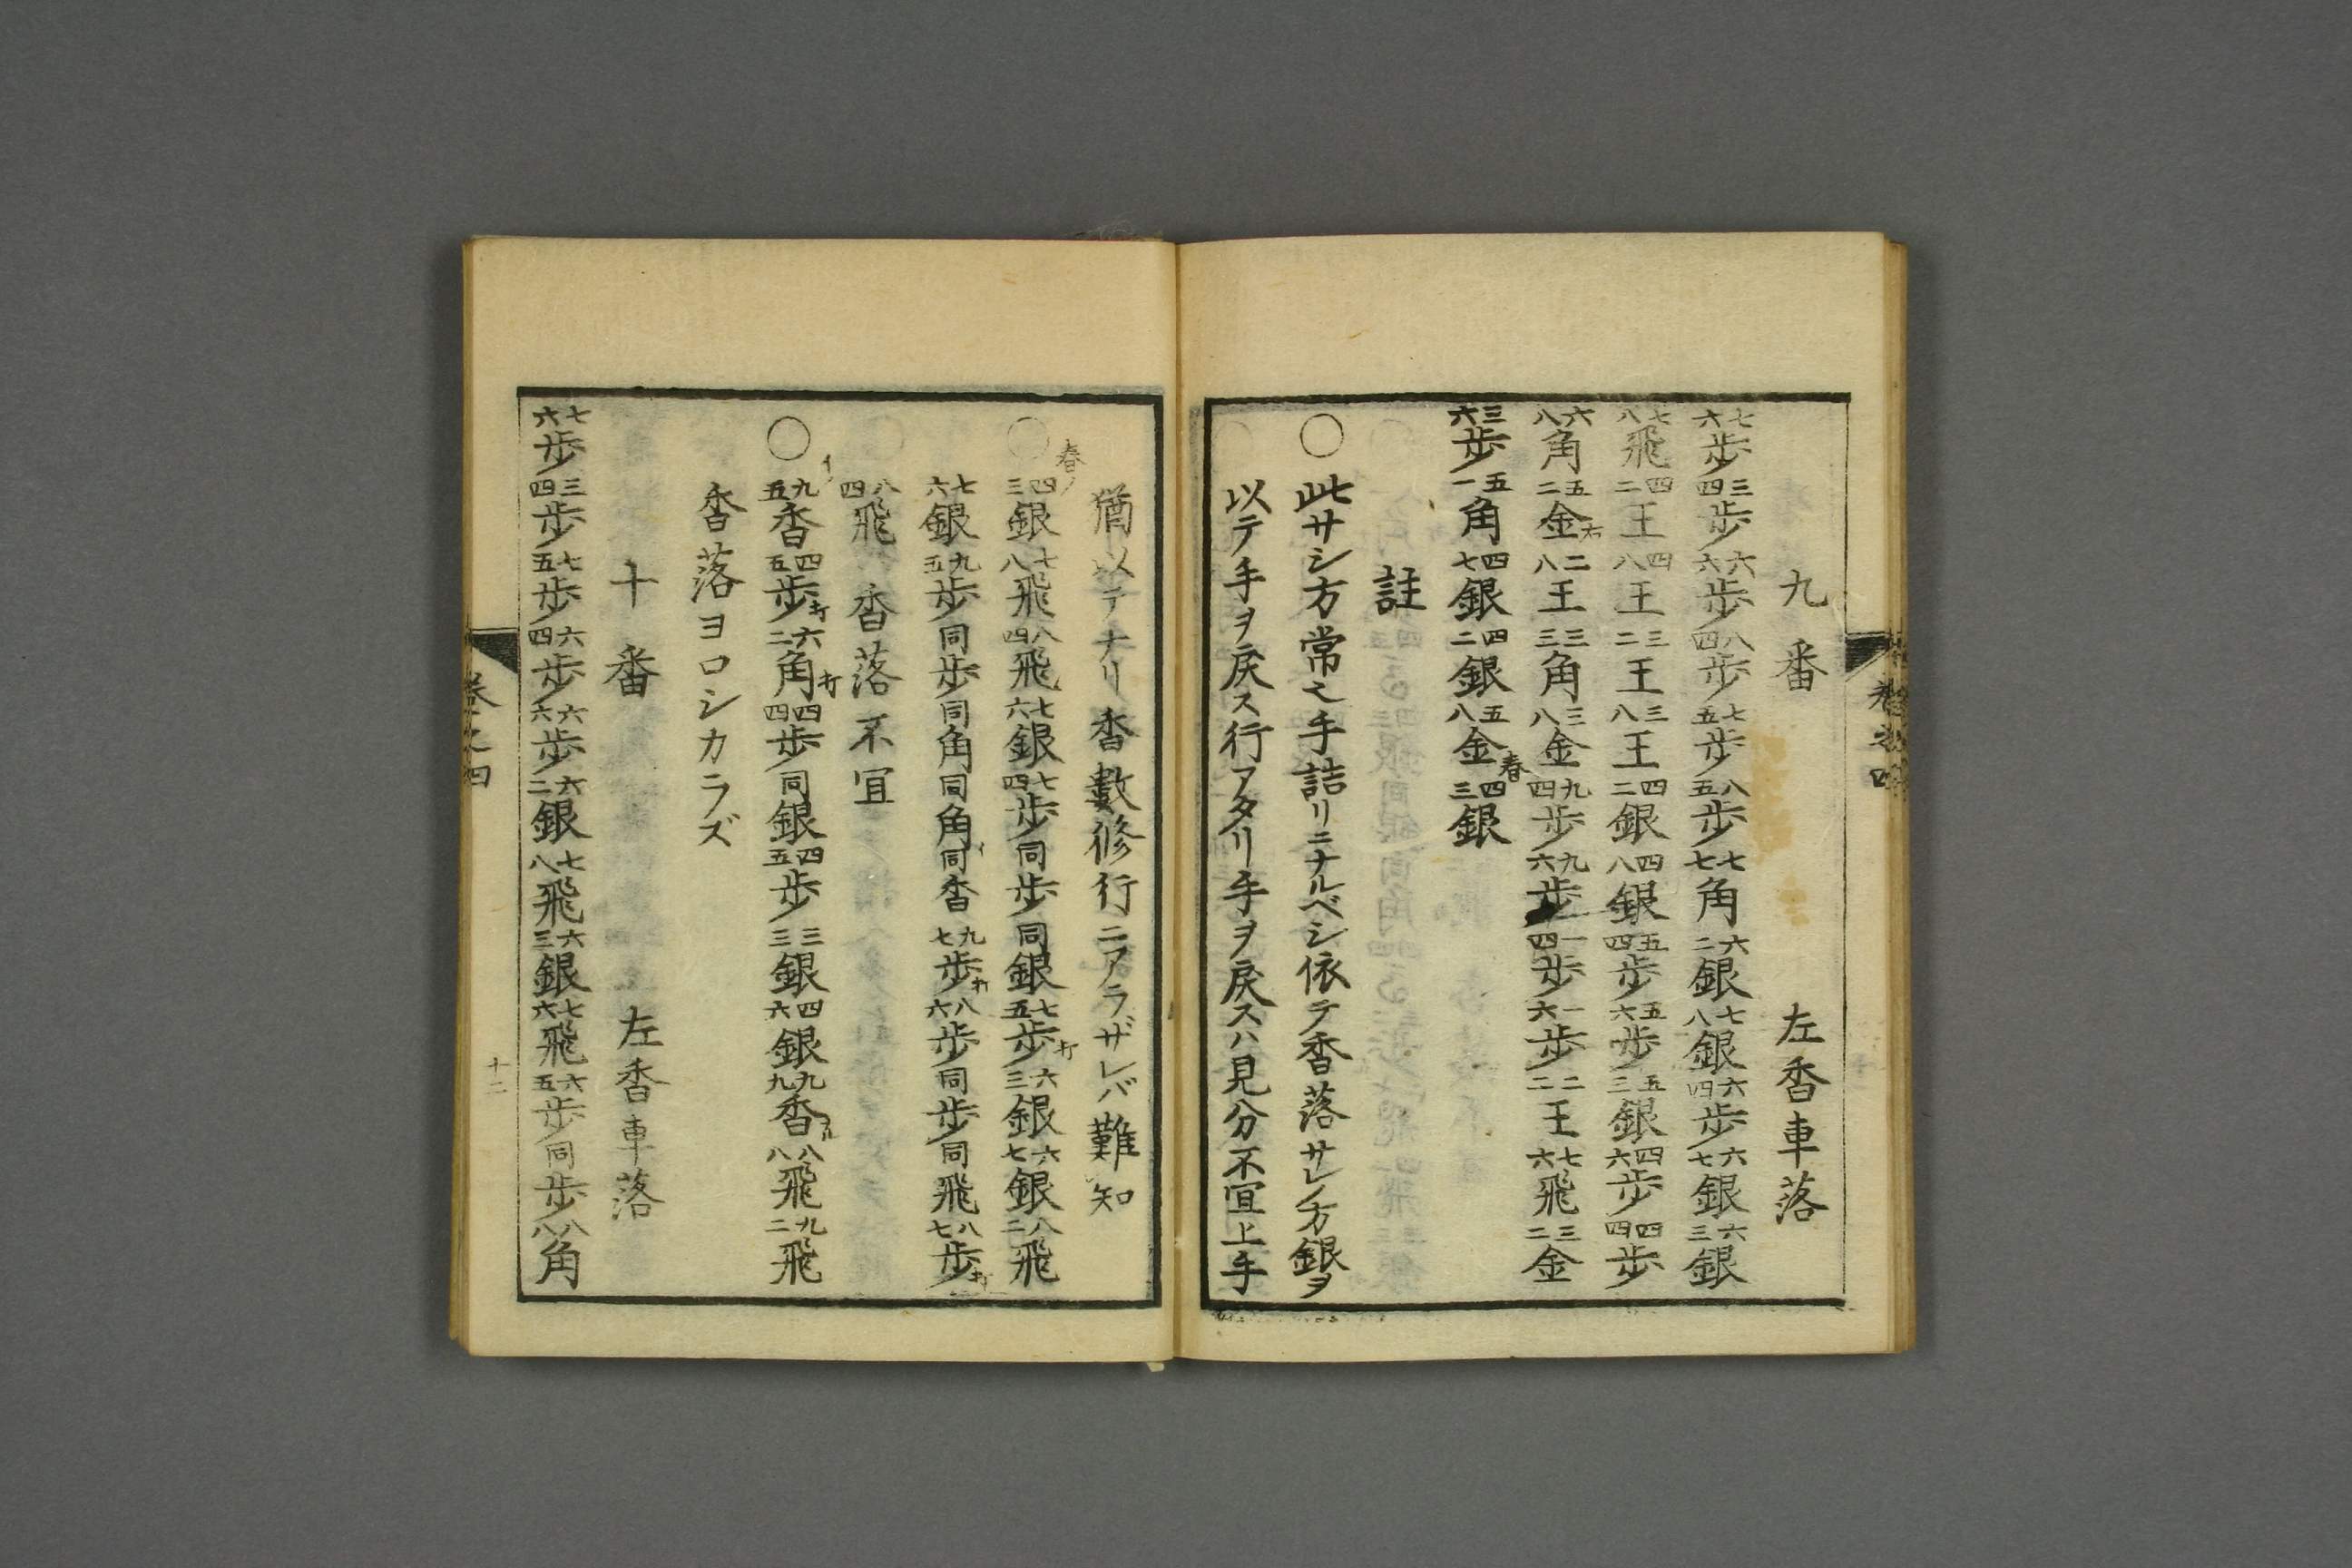 九番　左香車落
七六歩 三四歩 六六歩 八四歩 七五歩 八五歩 七七角 六二銀 七八銀 六四歩 六七銀 六三銀
七八飛 四二王 四八王 三二王 三八王 四二銀 四八銀 五四歩 五六歩 五三銀 四六歩 四四歩
六八角 五二金右 二八王 三三角 三八金 九四歩 九六歩 一四歩 一六歩 二二王 七六飛 三二金
三六歩 五一角 四七銀 四二銀 五八金 四三銀春
註
○此サシ方常之手詰リニナルベシ依テ香落サレノ方銀ヲ
以テ手ヲ戻ス行アタリ手ヲ戻スハ見分不宜上手
猶以テナリ香數修行ニアラザレバ難知
○春ノ四三銀 七八飛 八四飛 七六銀 七四歩 同歩 同銀 七五歩打 六三銀 六七銀 八二飛
七六銀 九五歩 同歩 同角 同角イ 同香 九七歩打 八六歩 同歩 同飛 八七歩打
八四飛 香落不宜
○イノ九五香 四五歩打 六二角打 四四歩 同銀 四五歩 三三銀 四六銀 九九香ナル 八八飛 九二飛
香落ヨロシカラズ
十番　左香車落
七六歩 三四歩 七五歩 六四歩 六六歩 六二銀 七八飛 六三銀 七六飛 六五歩 同歩 八八角
卷之四
十二